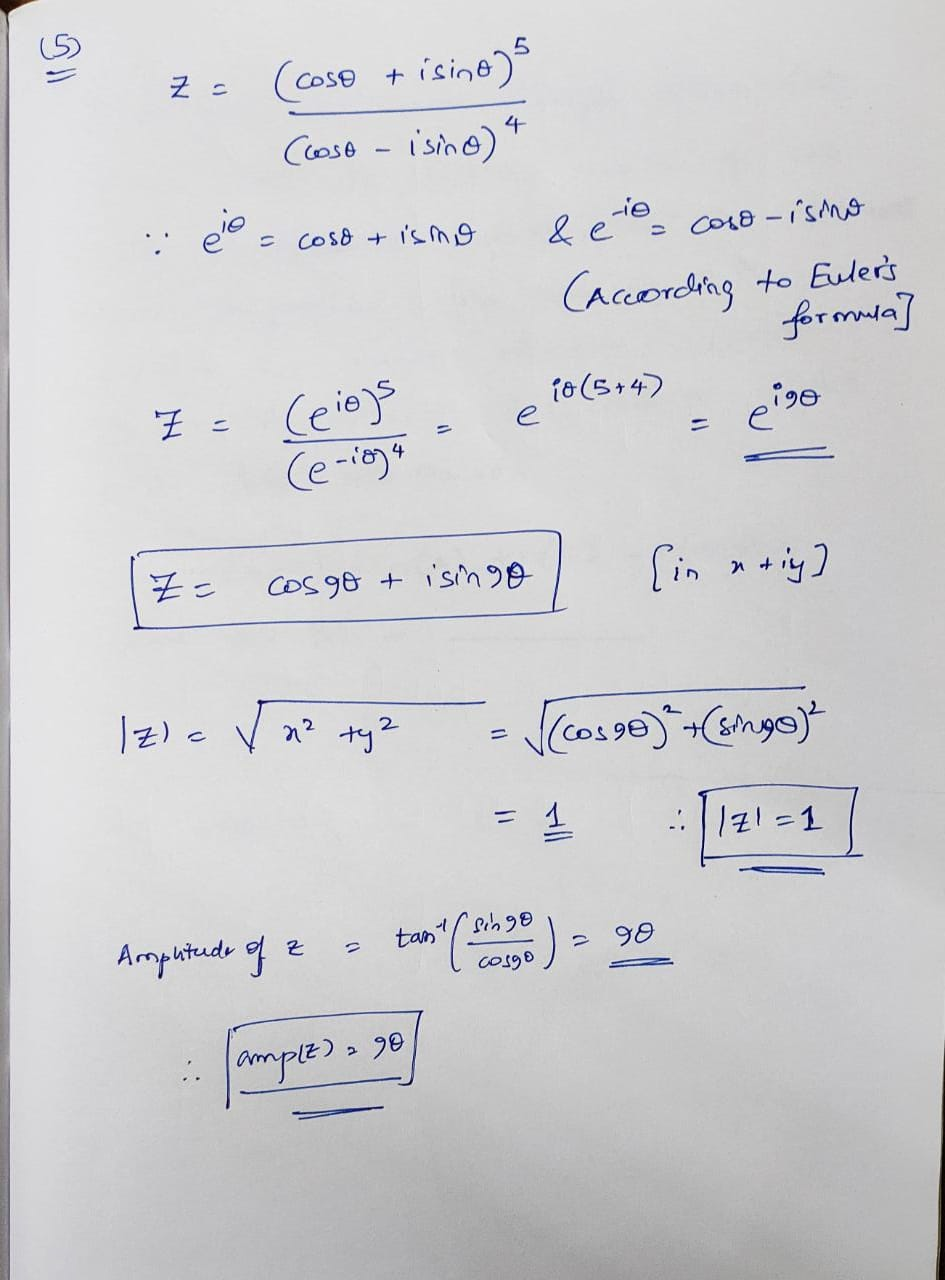 (5)
z = (cosθ + isinθ)^5 / (cosθ - isinθ)^4
∵ e^{iθ} = cosθ + isinθ & e^{-iθ} = cosθ - isinθ
(According to Euler's
formula]
z = (e^{iθ})^5 / (e^{-iθ})^4 = e^{iθ(5+4)} = e^{i9θ}
z = cos9θ + isin9θ [in x+iy]
|z| = √(x² + y²) = √((cos9θ)² + (sin9θ)²)
= 1 ∴ |z| = 1
Amplitude of z = tan⁻¹(sin9θ / cos9θ) = 9θ
∴ amp(z) = 9θ